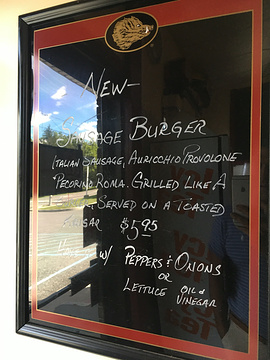 NEW-
SAUSAGE BURGER
ITALIAN SAUSAGE, AURICCHIO PROVOLONE
PECORINO ROMA. GRILLED LIKE A
SERVED ON A TOASTED
$5.95
W/ PEPPERS & ONIONS
OR
LETTUCE OIL &
VINEGAR